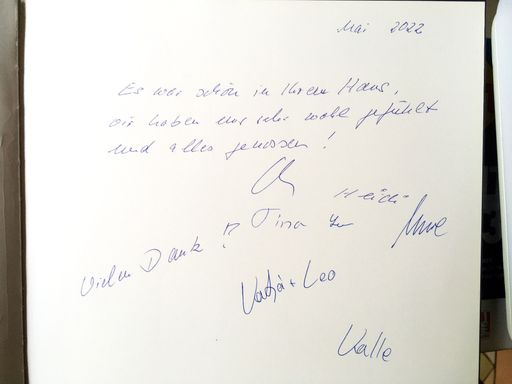 Mai 2022
Es war schön in Ihrem Haus,
wir haben uns sehr wohl gefühlt
und alles genossen!
Heidi
Tina
Uwe
Vielen Dank!
Katja + Leo
Kalle